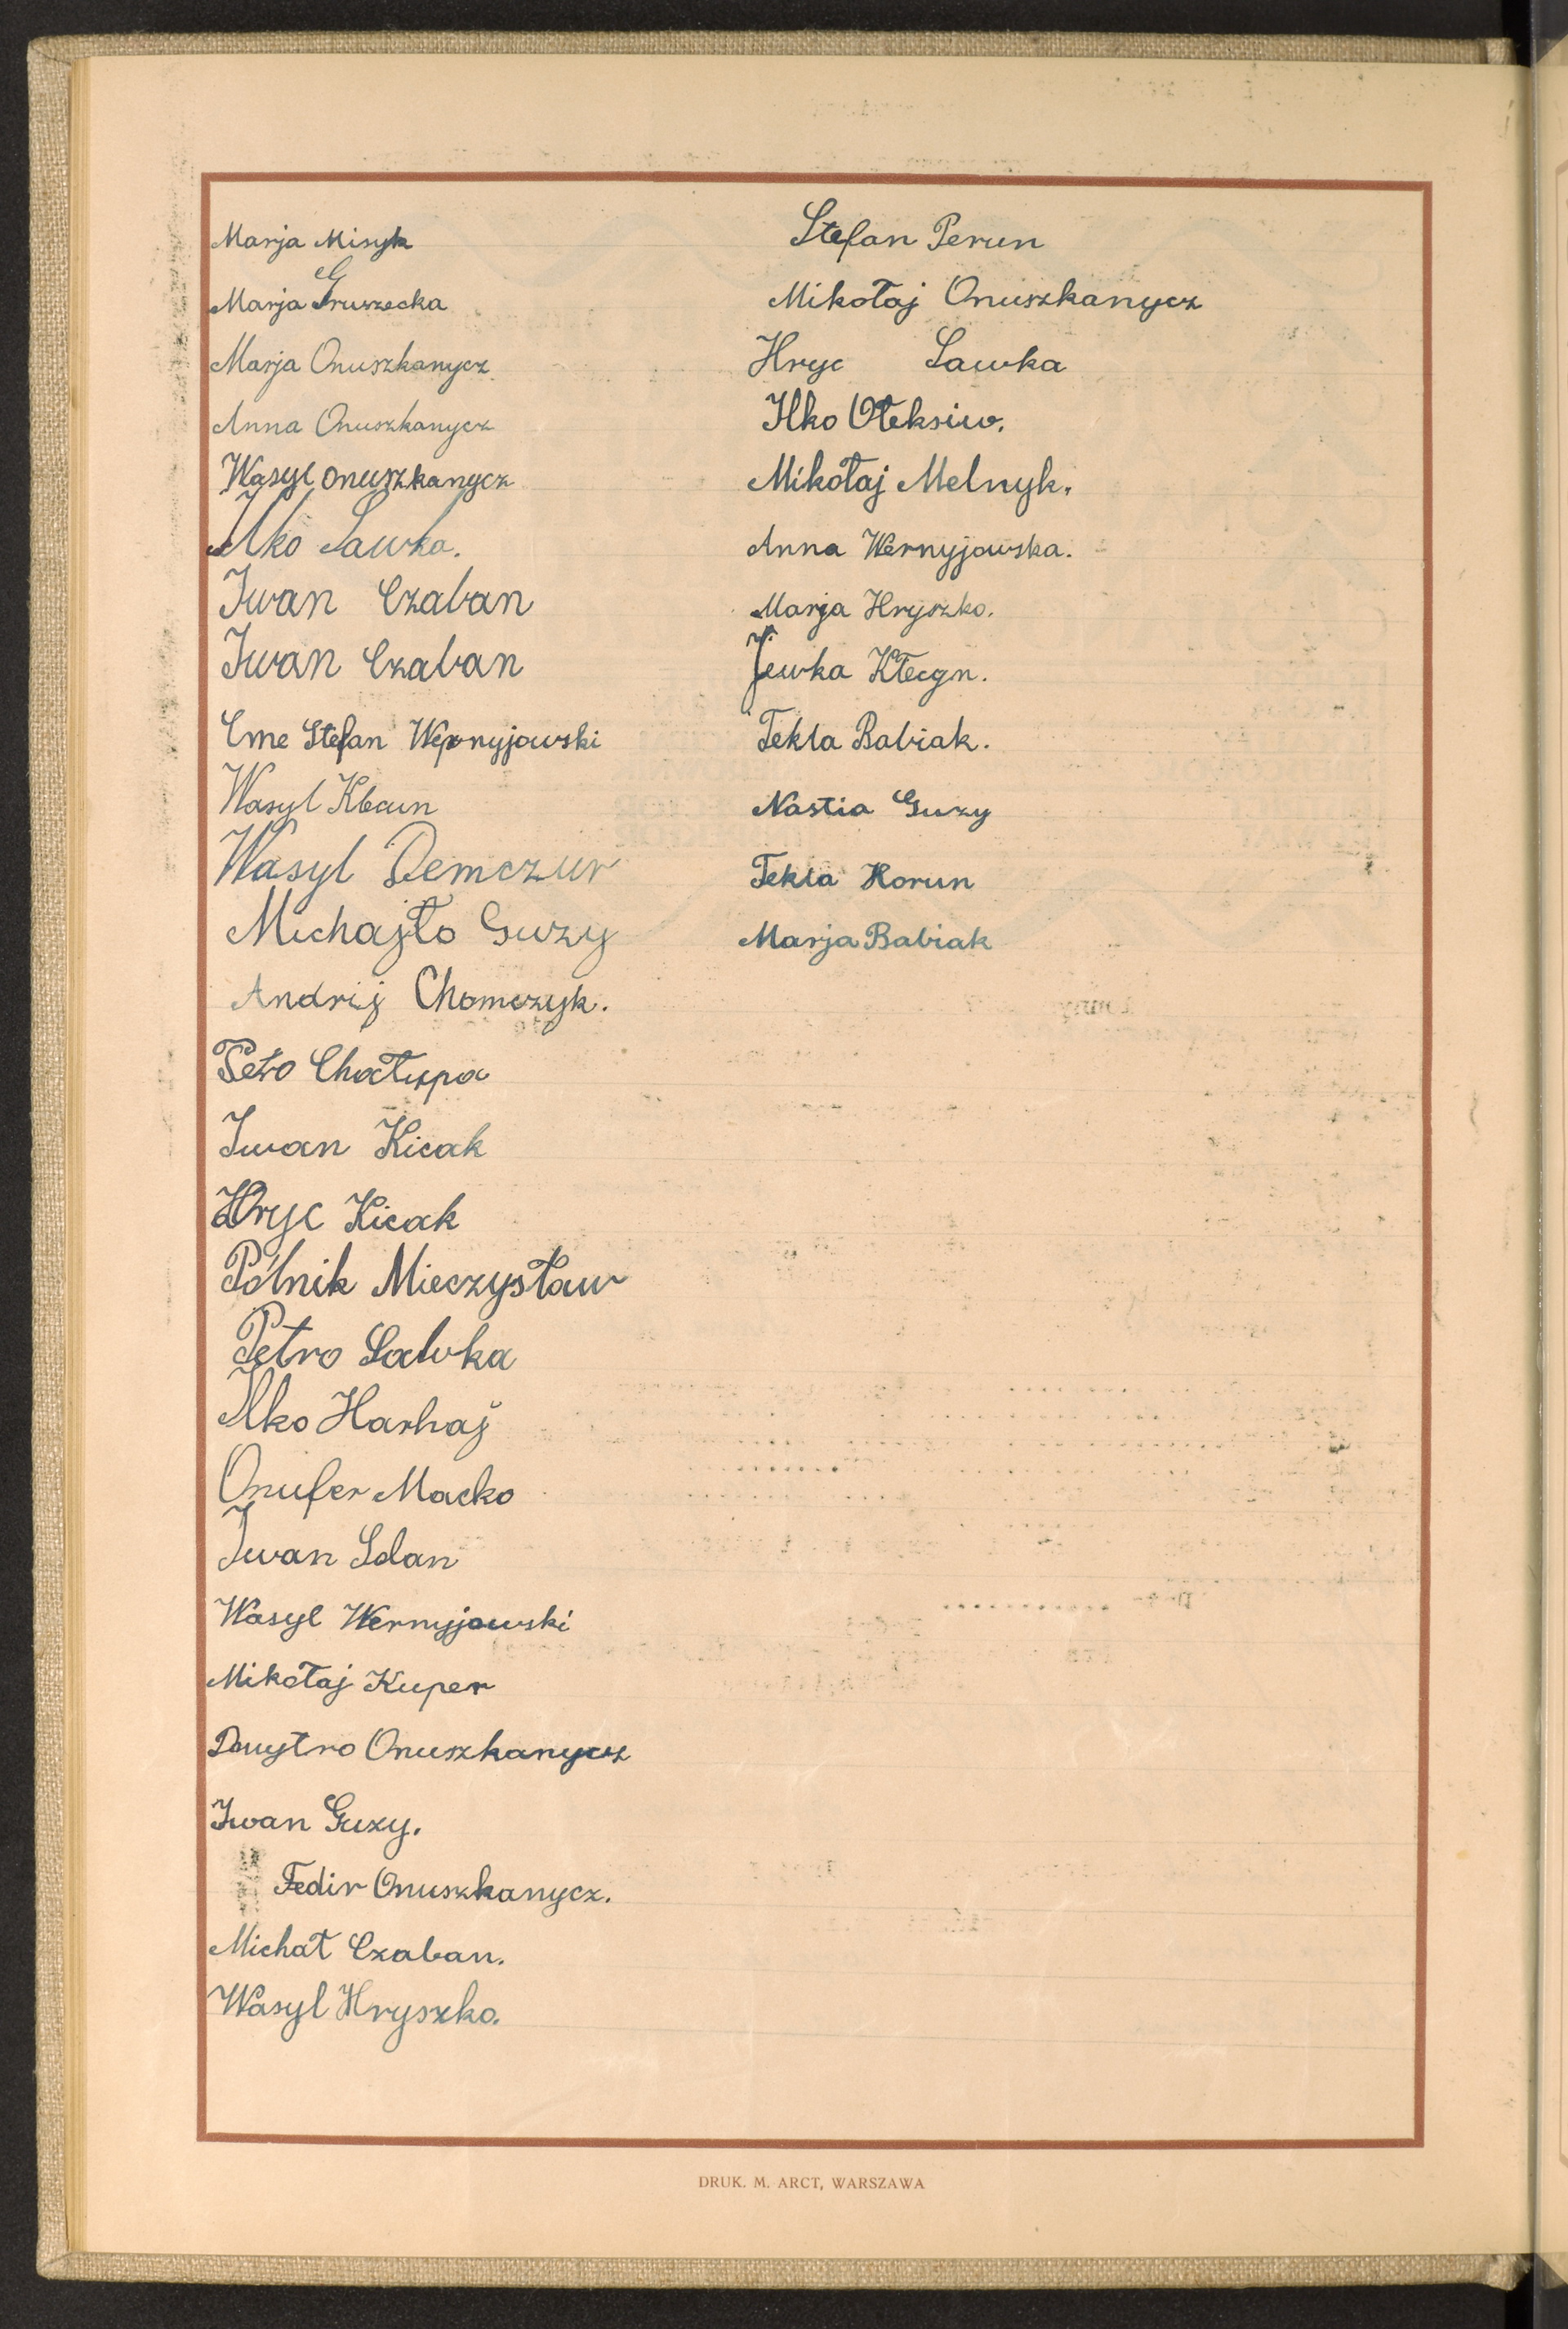 Marja Misyk
Marja Gruszecka
Marja Onuszkanycz
Anna Onuszkanycz
Wasyl Onuszkanycz
Ilko Sawka.
Iwan Czaban
Iwan Czaban
Eme Stefan Wernyjowski
Wasyl
Wasyl Demczur
Michajło Guzy
Andrij Chomczyk.
Chałupa
Iwan Kicak
Hryc Kicak
Pólnik Mieczysław
Petro Sawka
Ilko Harhaj
Onufer Macko
Iwan
Wasyl Wernyjowski
Mikołaj Kuper
Dmytro Onuszkanycz
Iwan Guzy.
Fedir Onuszkanycz.
Michał Czaban.
Wasyl Hryszko.
Stefan Perun
Mikołaj Onuszkanycz
Hryc Sawka
Ilko Ołeksiw.
Mikołaj Melnyk.
Anna Wernyjowska.
Marja Hryszko.
Jewka
Tekla Babiak.
Nastia Guzy
Tekla Korun
Marja Babiak
DRUK. M. ARCT, WARSZAWA